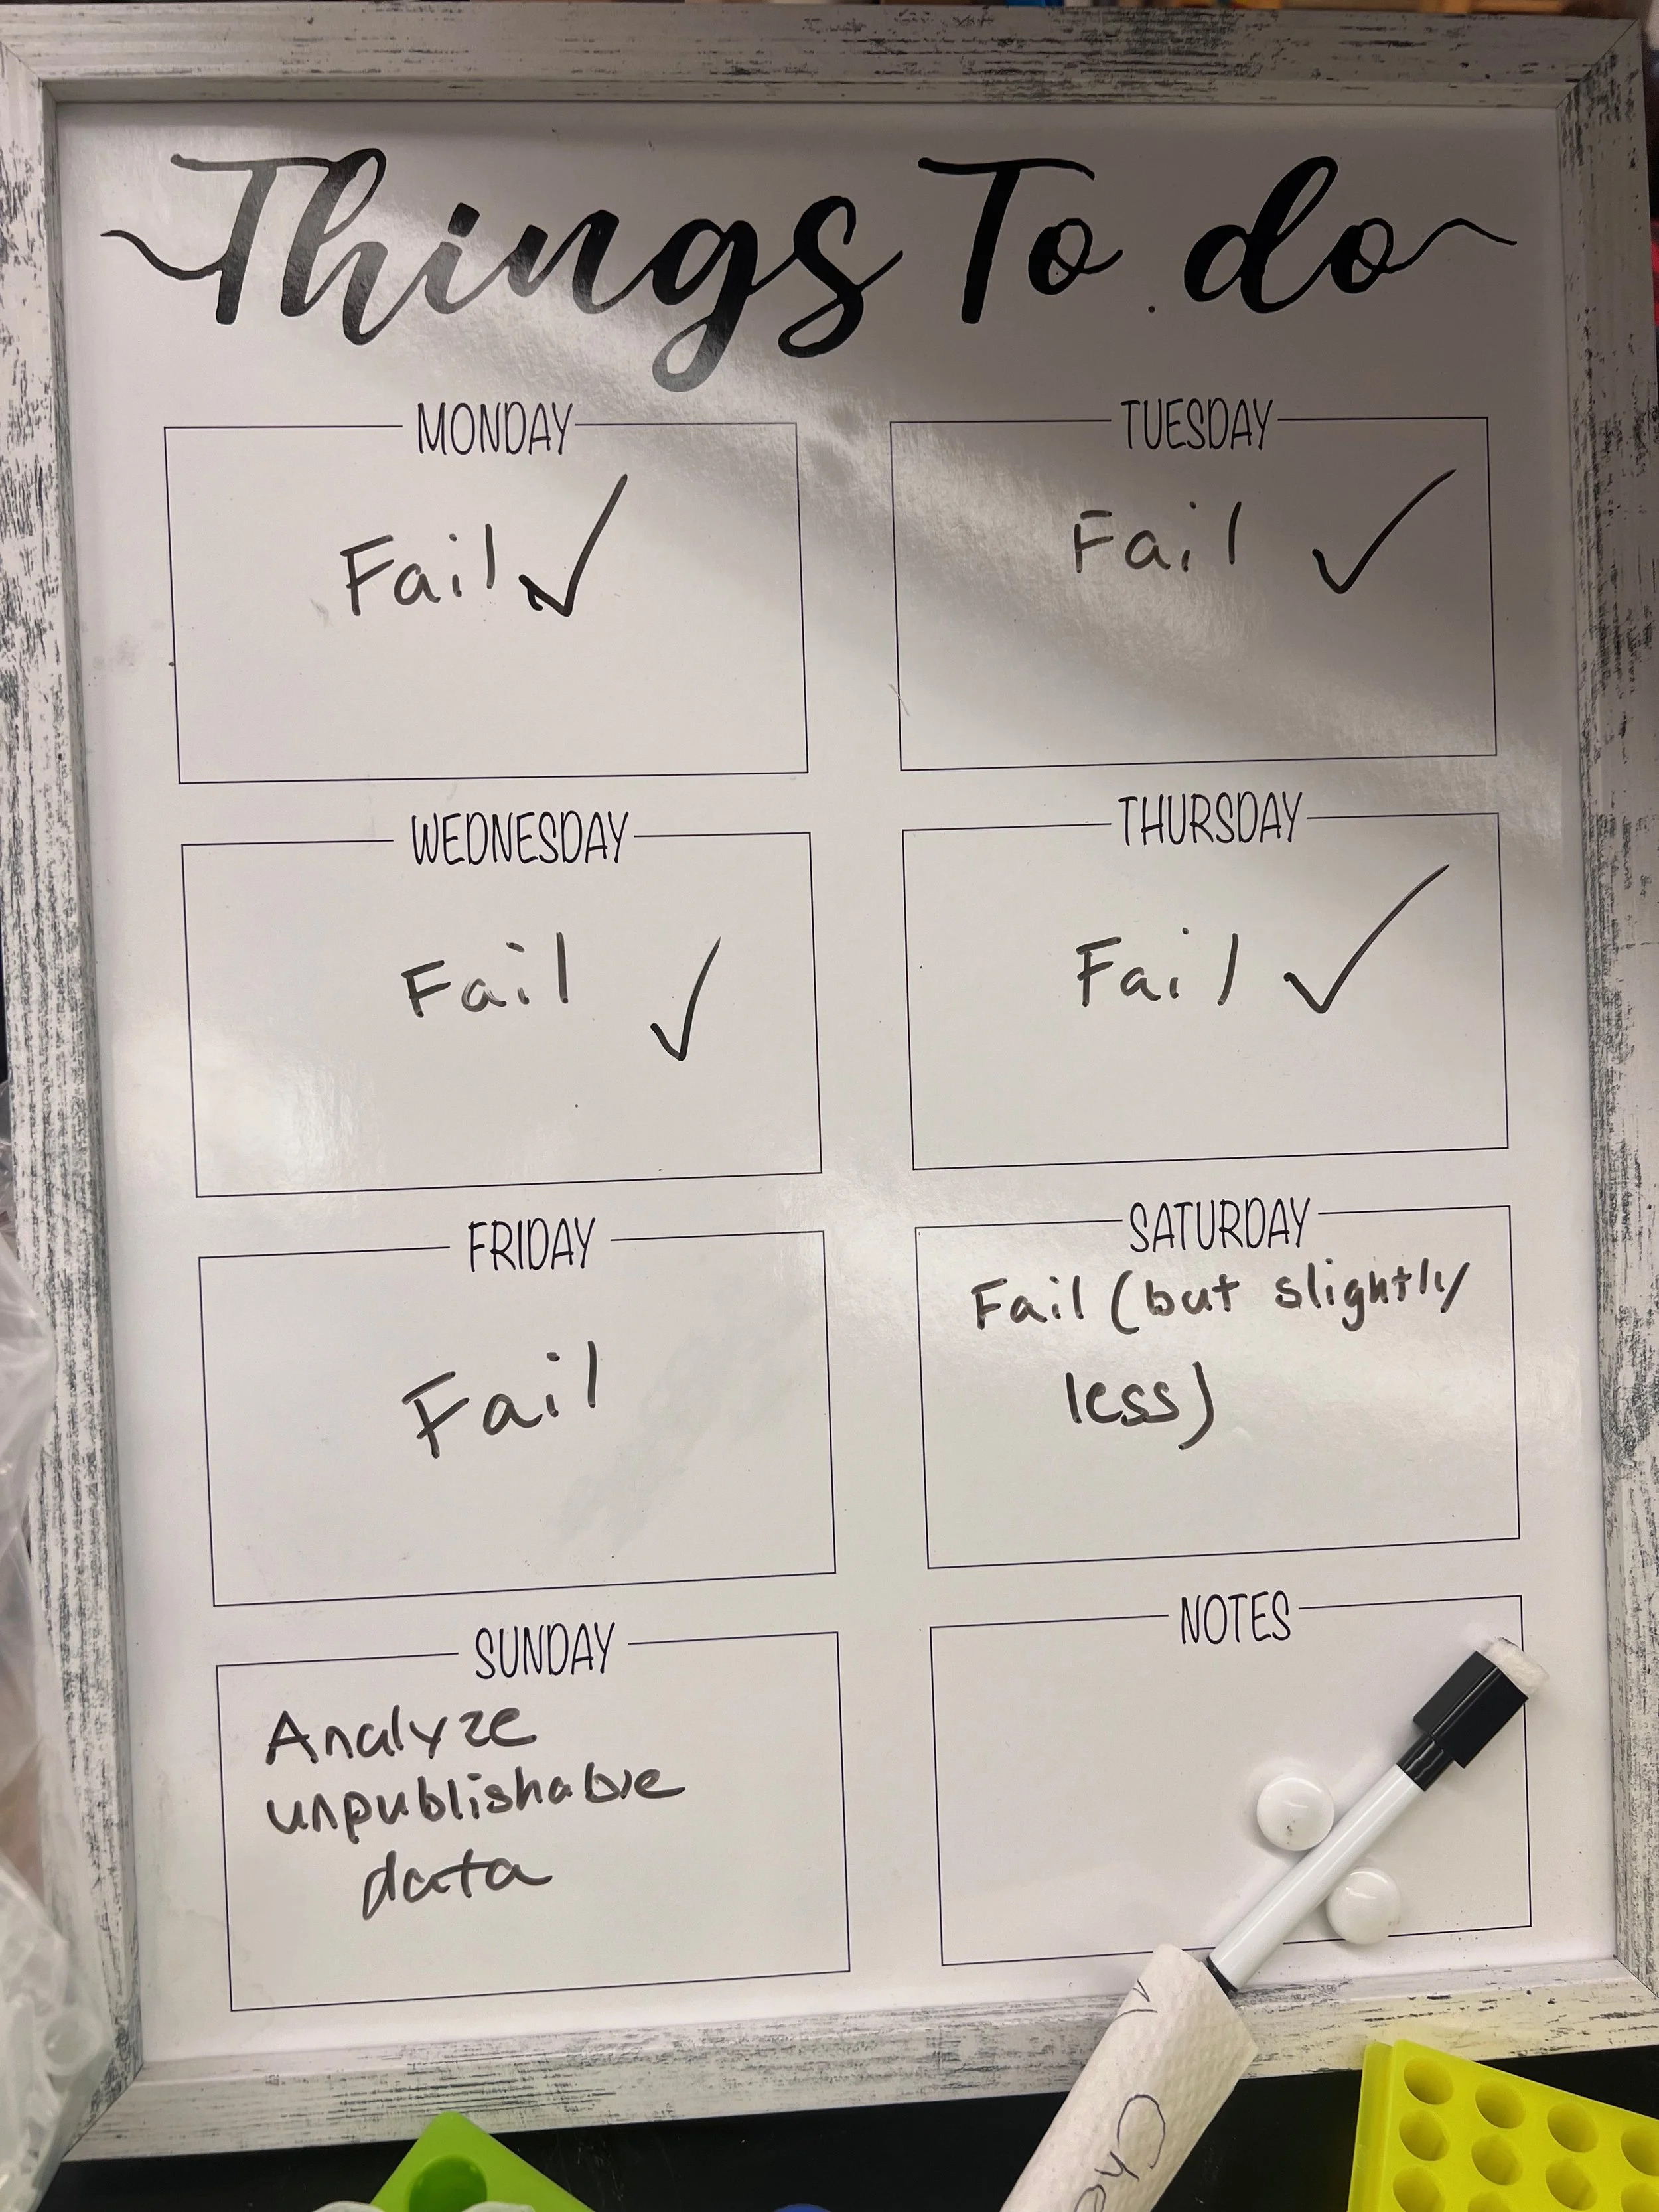 Things To do
MONDAY
Fail ✓
TUESDAY
Fail ✓
WEDNESDAY
Fail ✓
THURSDAY
Fail ✓
FRIDAY
Fail
SATURDAY
Fail (but slightly
less)
SUNDAY
Analyze
unpublishable
data
NOTES